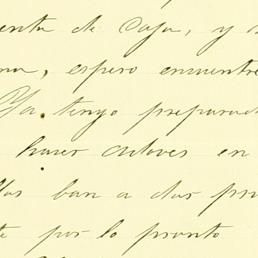 enta de Caja, y d
na, espero encuentre
Ya tengo preparad
hacer clavos en
los ban a dar pr
te por lo pronto